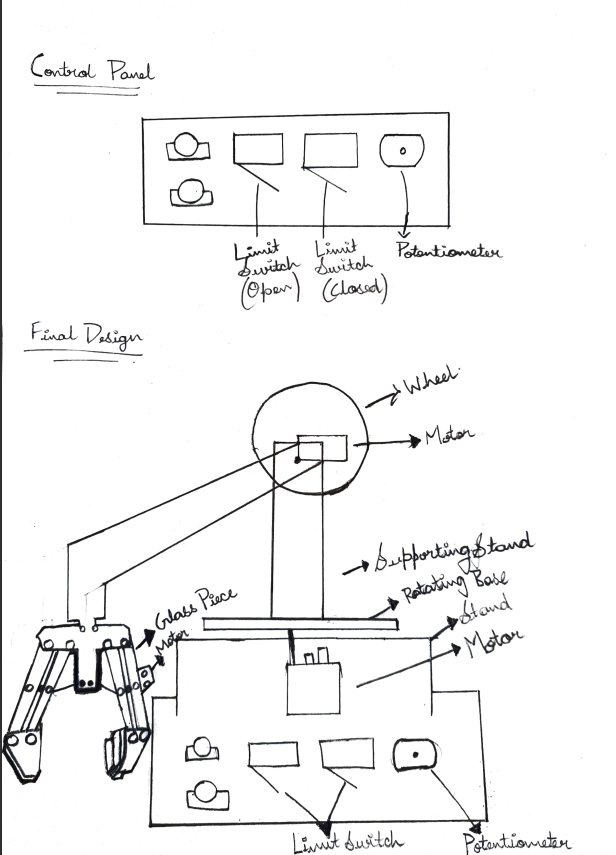 Control Panel
Limit
Switch
(Open)
Limit
Switch
(Closed)
Potentiometer
Final Design
Wheel
Motor
Supporting Stand
Rotating Base
Stand
Motor
Glass Piece
Motor
Limit Switch
Potentiometer